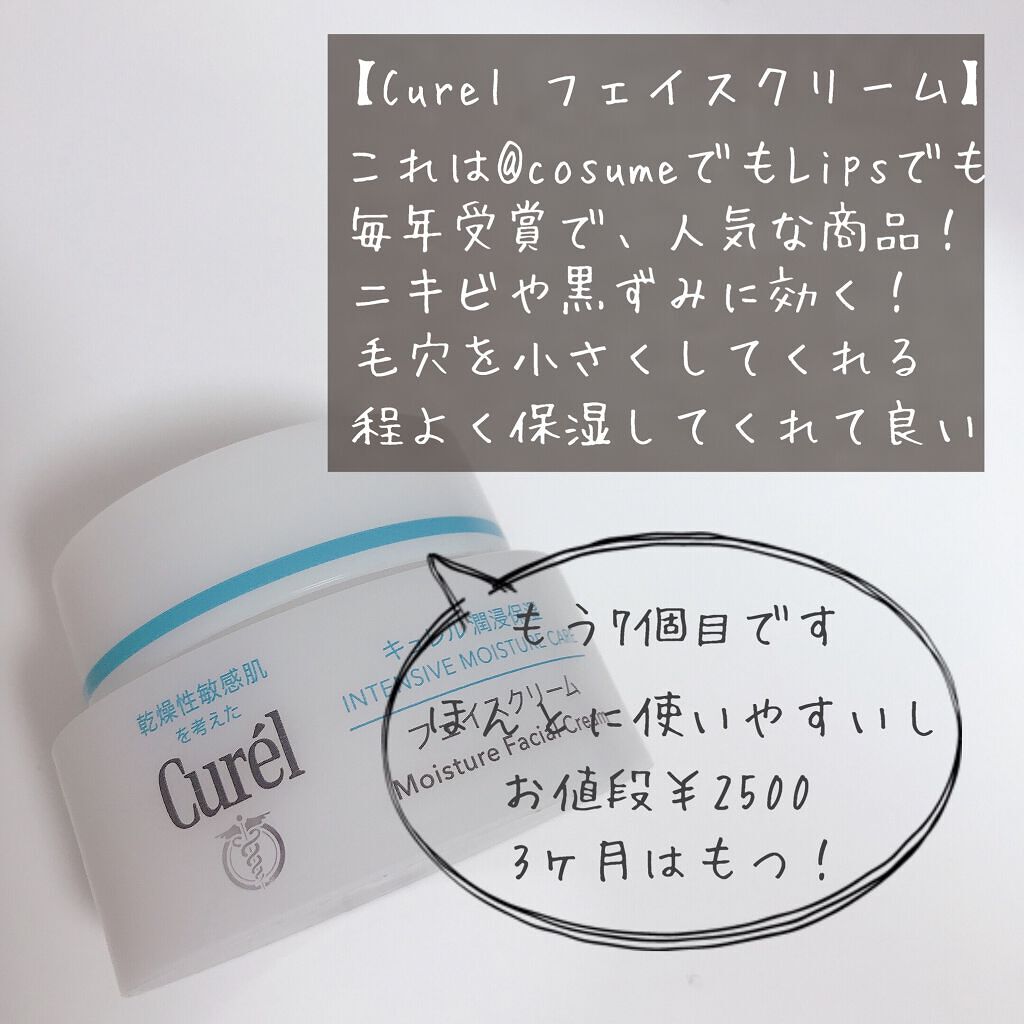 【Curel フェイスクリーム】
これは@cosumeでもLipsでも
毎年受賞で、人気な商品！
ニキビや黒ずみに効く！
毛穴を小さくしてくれる
程よく保湿してくれて良い
もう7個目です
ほんとに使いやすいし
お値段¥2500
3ヶ月はもつ！
乾燥性敏感肌
を考えた
Curél
キュレル 潤浸保湿
INTENSIVE MOISTURE CARE
フェイスクリーム
Moisture Facial Cream